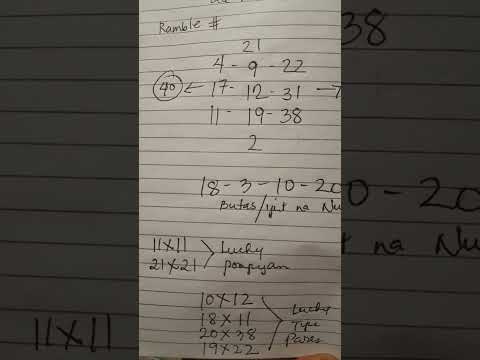 Ramble #
21
4 - 9 - 22
40 ← 17 - 12 - 31 →
11 - 19 - 38
2
18 - 3 - 10 - 20
Butas/ipit na Nu
11X11
21X21
Lucky
10X12
18X11
20X38
19X22
Lucky
Type
Pares